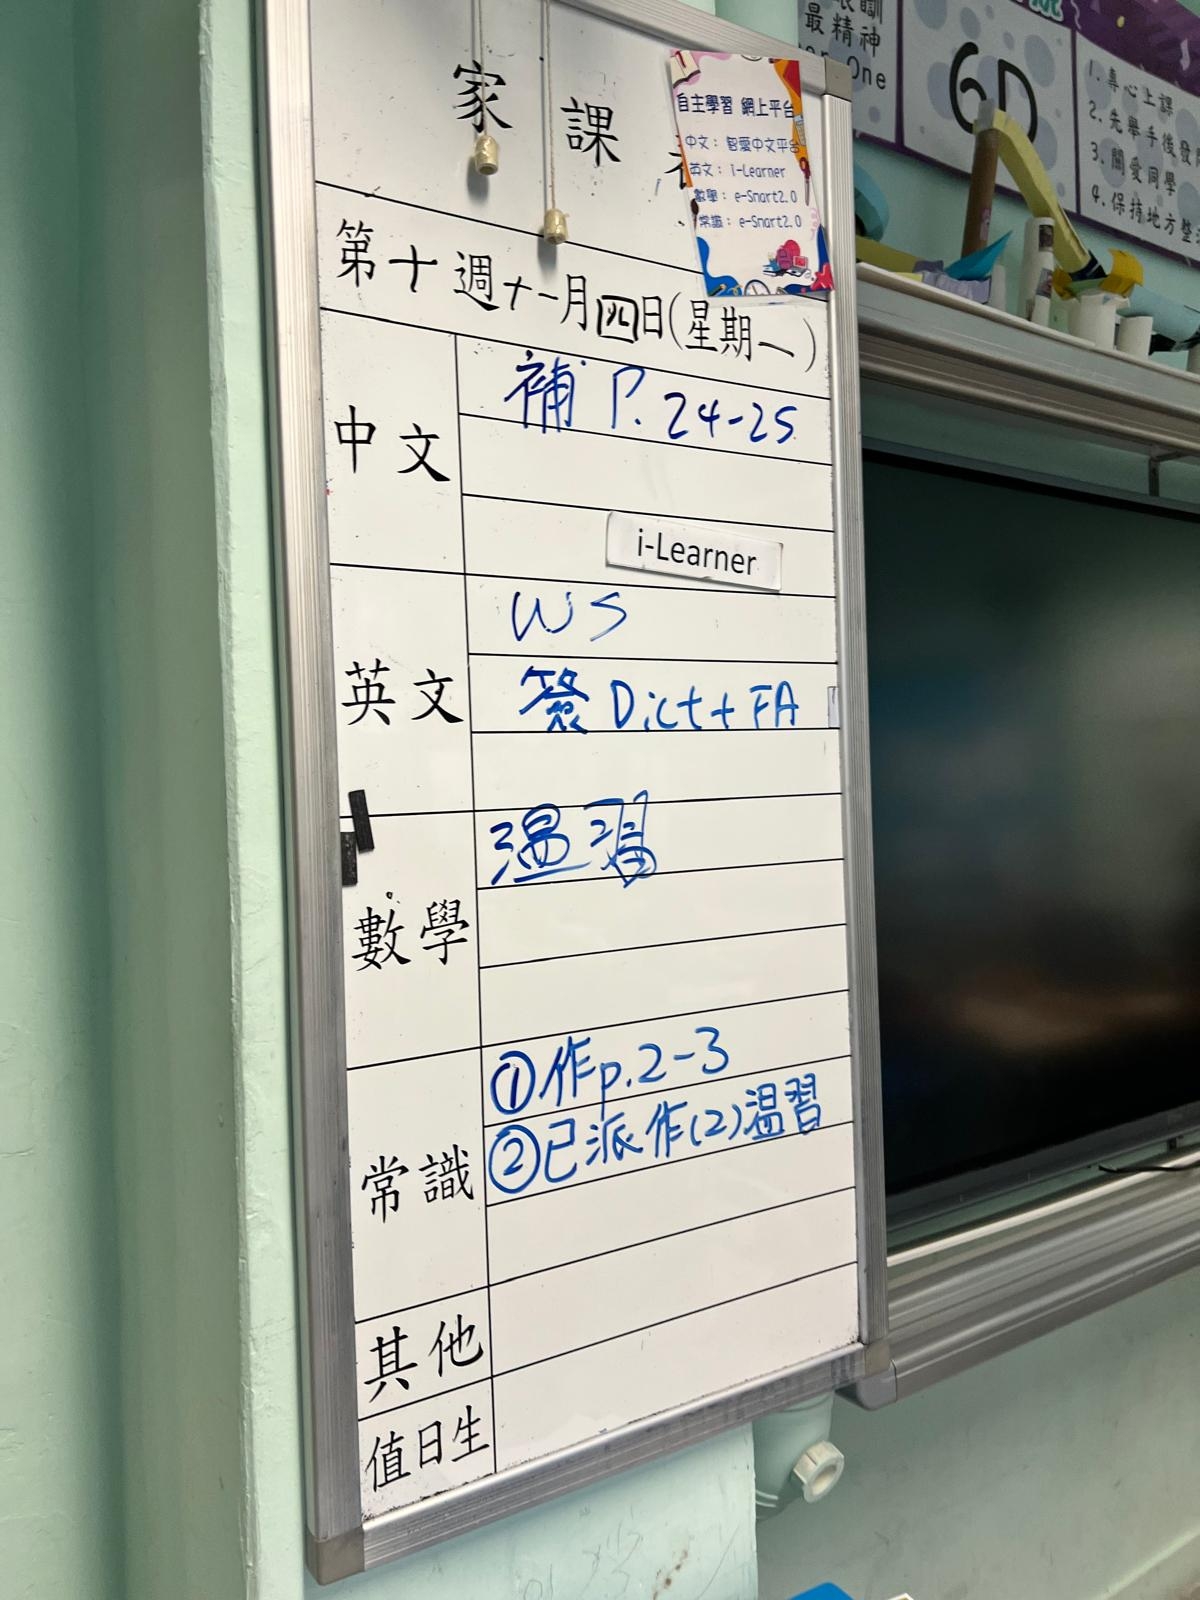 家 課
自主學習 網上平台
中文：智愛中文平台
英文：i-Learner
數學：e-Smart2.0
常識：e-Smart2.0
第十週十一月四日(星期一)
中文
補 P. 24-25
i-Learner
英文
WS
簽 Dict + FA
數學
溫習
常識
①作p.2-3
②已派作(2)溫習
其他
值日生
最精神
One
6D
1. 專心上課
2. 先舉手後發
3. 關愛同學
4. 保持地方整